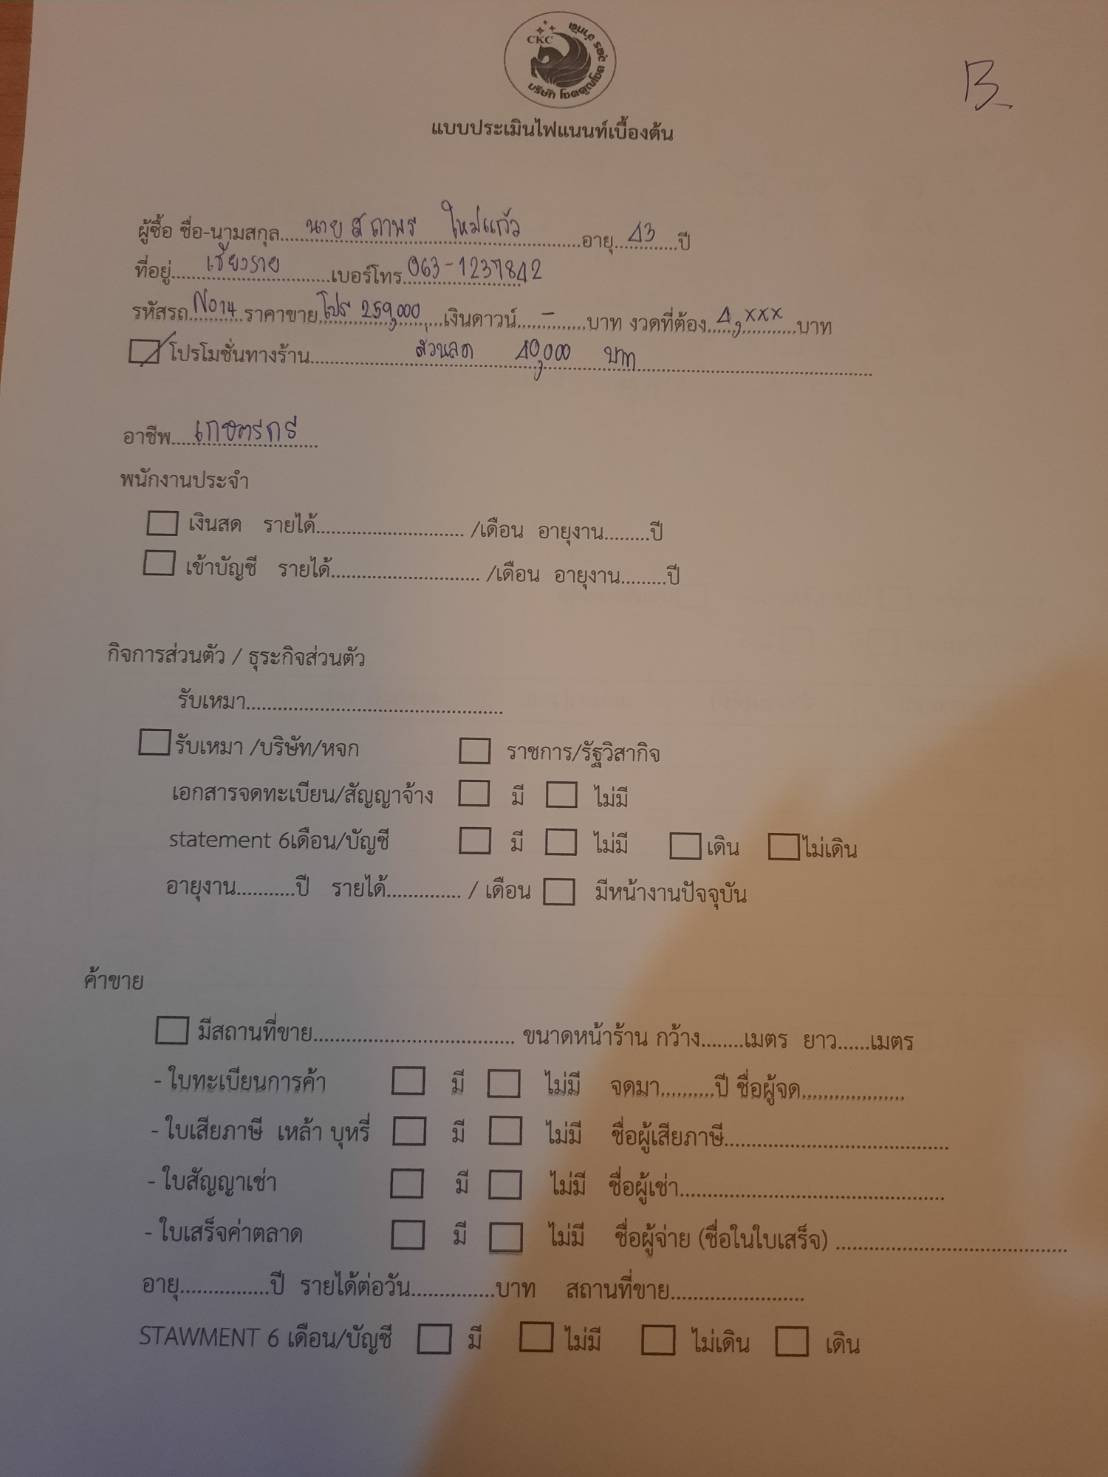 CKC
บริษัท โชคคูณโชค
B
แบบประเมินไฟแนนท์เบื้องต้น
ผู้ซื้อ ชื่อ-นามสกุล....นาย สถาพร ใหม่แก้ว....อายุ..43..ปี
ที่อยู่....เชียงราย....เบอร์โทร.063-1237842
รหัสรถ.No14.ราคาขาย.โปร 259,000....เงินดาวน์....-....บาท งวดที่ต้อง..4,xxx..บาท
โปรโมชั่นทางร้าน....ส่วนลด 40,000 บาท....
อาชีพ....เกษตรกร....
พนักงานประจำ
เงินสด รายได้............................ /เดือน อายุงาน.........ปี
เข้าบัญชี รายได้............................ /เดือน อายุงาน.........ปี
กิจการส่วนตัว / ธุระกิจส่วนตัว
รับเหมา................................................
รับเหมา /บริษัท/หจก ราชการ/รัฐวิสากิจ
เอกสารจดทะเบียน/สัญญาจ้าง มี ไม่มี
statement 6เดือน/บัญชี มี ไม่มี เดิน ไม่เดิน
อายุงาน...........ปี รายได้.............. / เดือน มีหน้างานปัจจุบัน
ค้าขาย
มีสถานที่ขาย...................................... ขนาดหน้าร้าน กว้าง........เมตร ยาว......เมตร
- ใบทะเบียนการค้า มี ไม่มี จดมา..........ปี ชื่อผู้จด...................
- ใบเสียภาษี เหล้า บุหรี่ มี ไม่มี ชื่อผู้เสียภาษี..........................................
- ใบสัญญาเช่า มี ไม่มี ชื่อผู้เช่า..................................................
- ใบเสร็จค่าตลาด มี ไม่มี ชื่อผู้จ่าย (ชื่อในใบเสร็จ) ............................................
อายุ.................ปี รายได้ต่อวัน................บาท สถานที่ขาย.........................
STAWMENT 6 เดือน/บัญชี มี ไม่มี ไม่เดิน เดิน